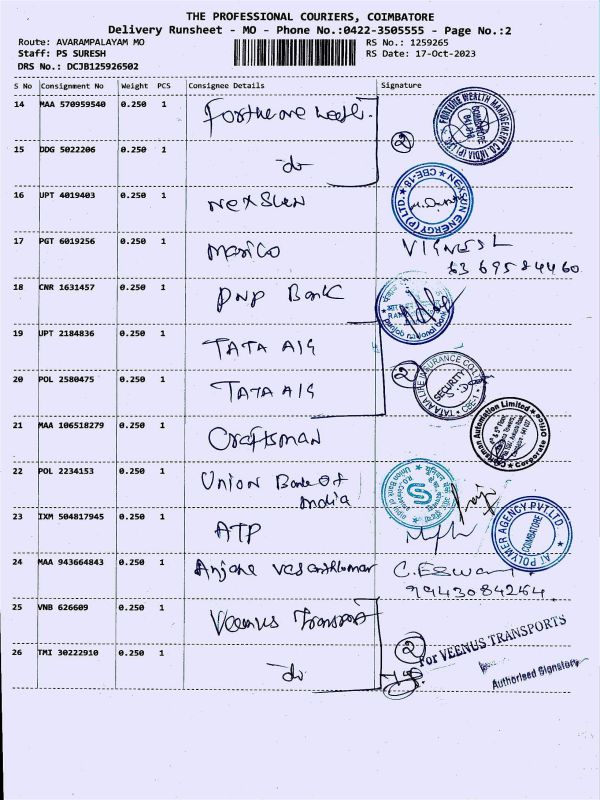 THE PROFESSIONAL COURIERS, COIMBATORE
Delivery Runsheet - MO - Phone No.:0422-3505555 - Page No.:2
Route: AVARAMPALAYAM MO RS No.: 1259265
Staff: PS SURESH RS Date: 17-Oct-2023
DRS No.: DCJB125926502
S No Consignment No Weight PCS Consignee Details Signature
14 MAA 570959540 0.250 1
FORTUNE WEALTH MANAGEMENT CO. INDIA (P) LTD.
2
15 DDG 5022206 0.250 1 do
16 UPT 4019403 0.250 1 Nexsun
NEXSUN ENERGY (P) LTD. CBE-18
17 PGT 6019256 0.250 1 Marico VIGNESH
63 69584460
18 CNR 1631457 0.250 1 PNP Bank
punjab national bank
19 UPT 2184836 0.250 1 TATA AIG
20 POL 2580475 0.250 1 TATA AIG
2
SECURITY
21 MAA 106518279 0.250 1 Craftsman
Craftsman Automation Limited Corporate Office
22 POL 2234153 0.250 1 Union Bank of
India
23 IXM 504817945 0.250 1 ATP
AT POLYMER AGENCY PVT LTD
COIMBATORE
24 MAA 943664843 0.250 1 Anjane vasanthkumar C. ESwar
9943084254
25 VNB 626609 0.250 1 Veenus Transport
For VEENUS TRANSPORTS
2
26 TMI 30222910 0.250 1 do
Authorised Signatory